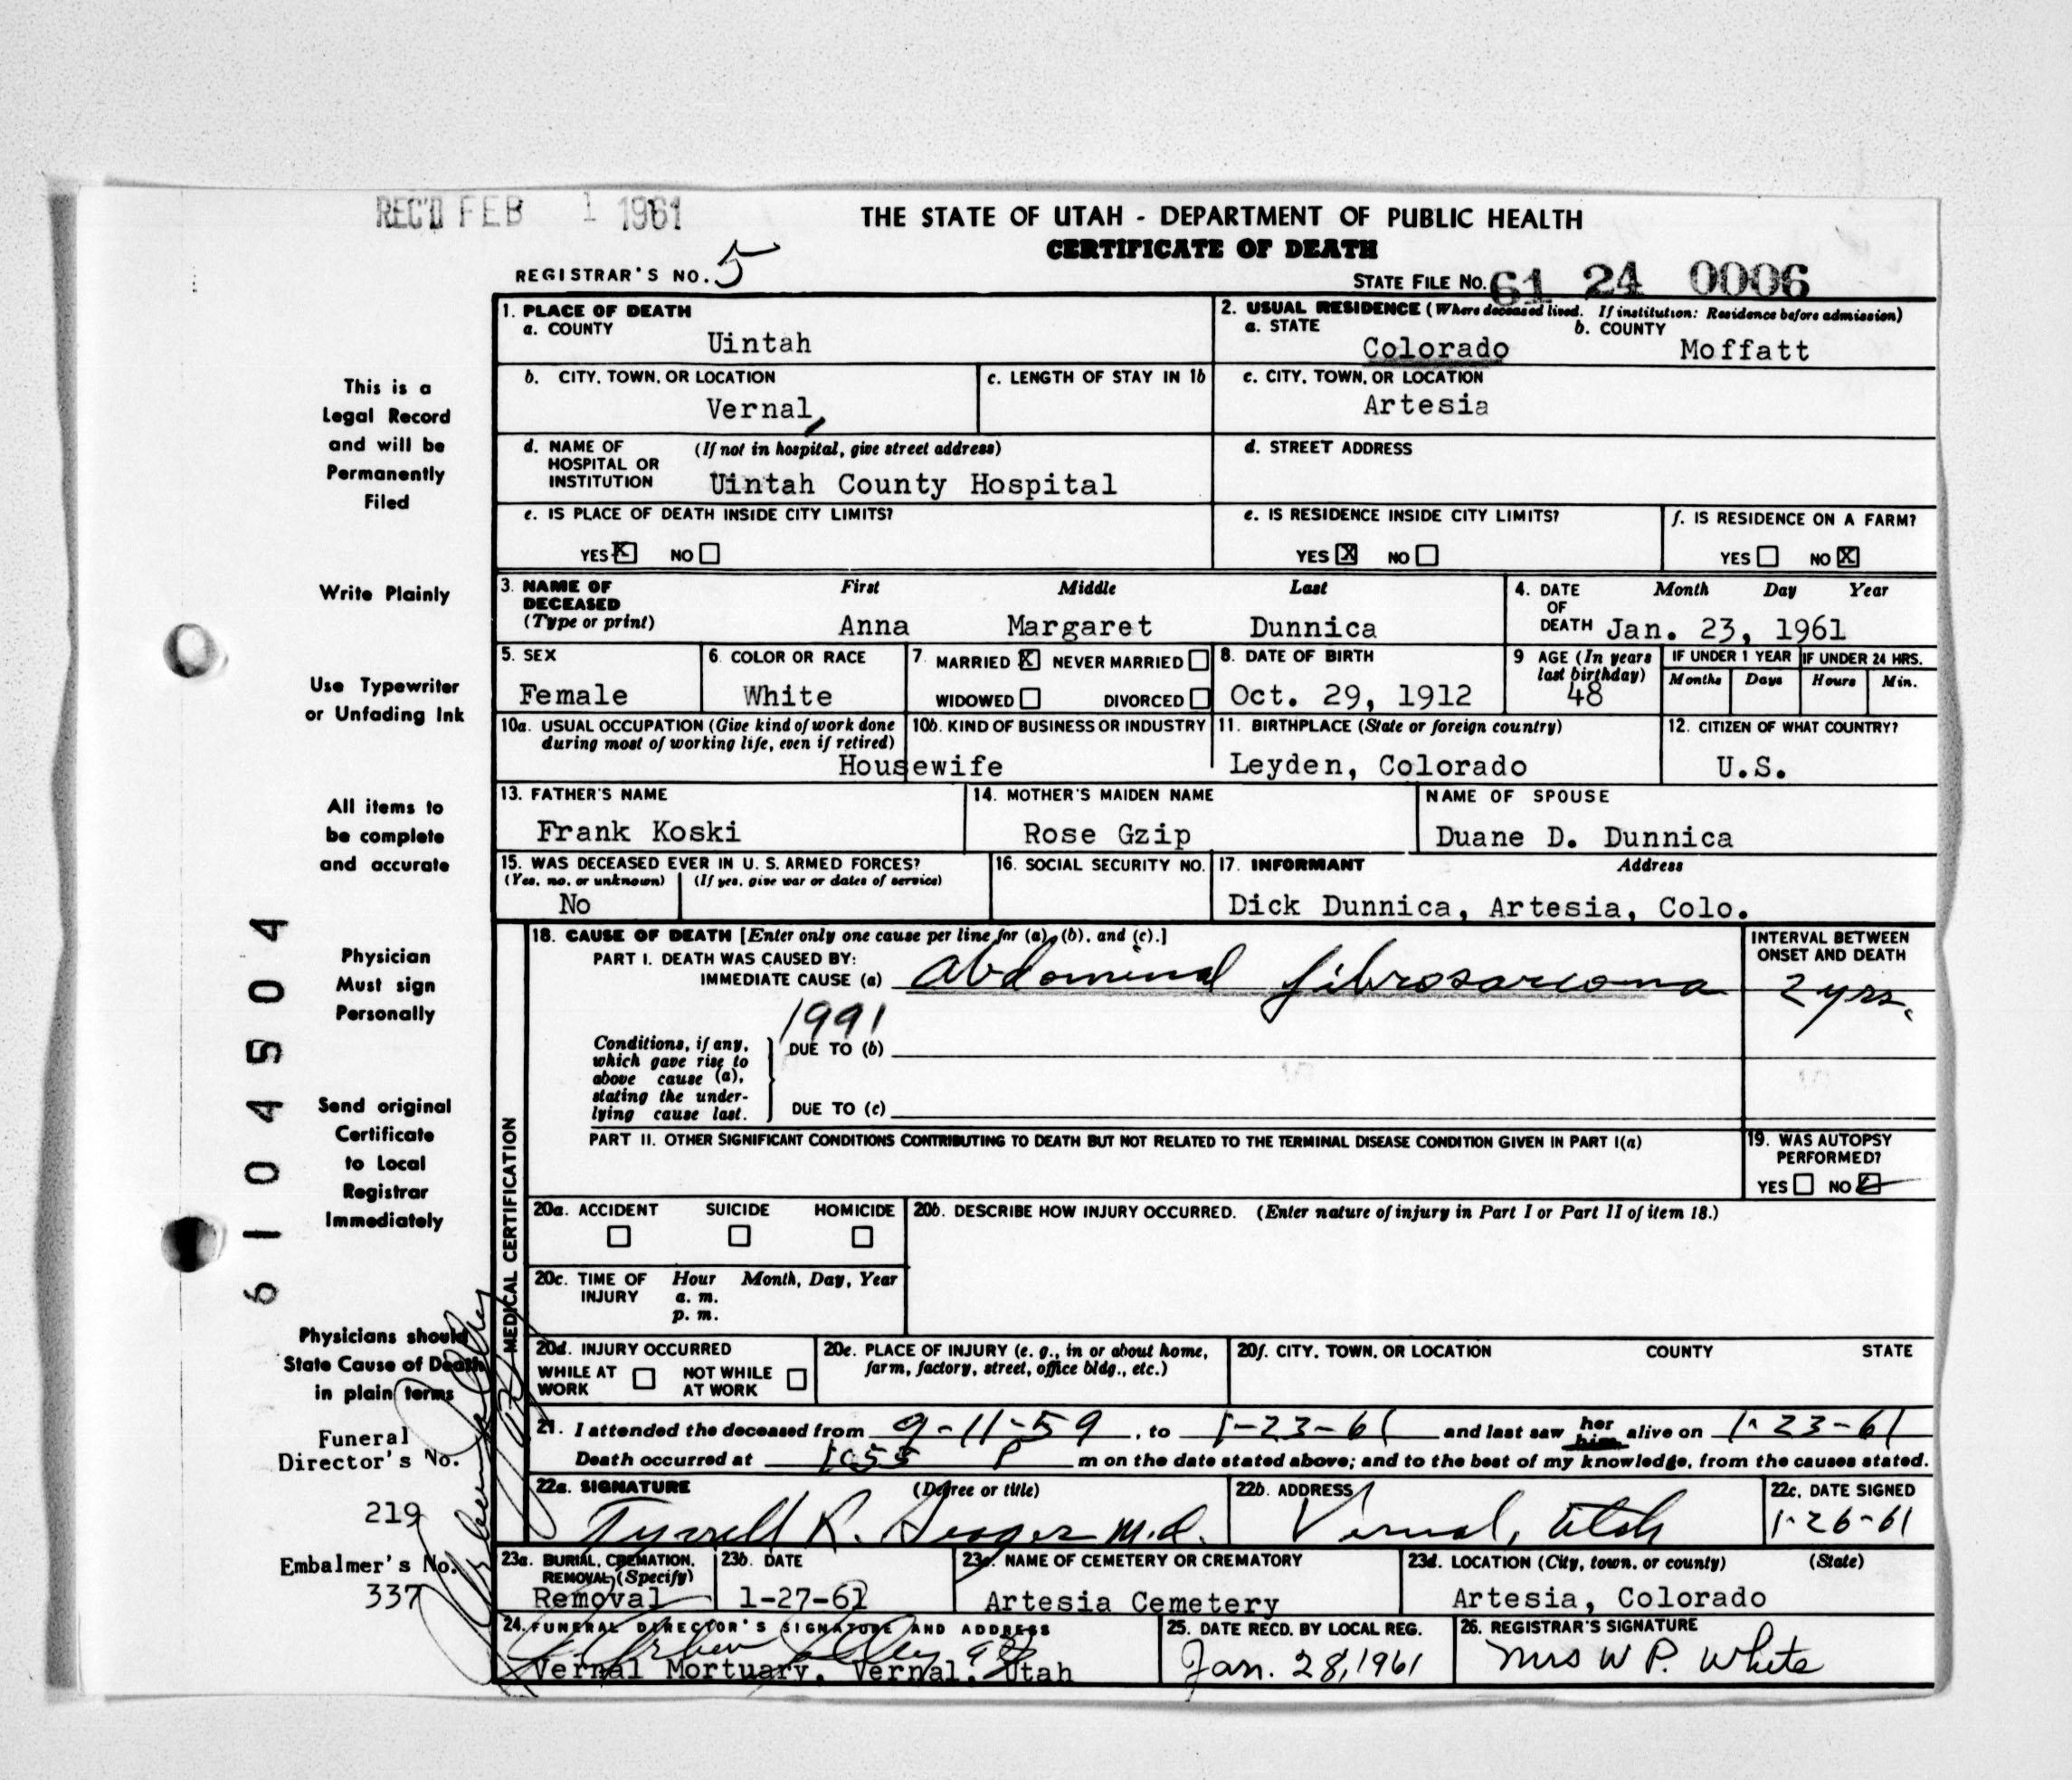 REC'D FEB 1 1961
THE STATE OF UTAH - DEPARTMENT OF PUBLIC HEALTH
CERTIFICATE OF DEATH
REGISTRAR'S NO. 5
STATE FILE NO. 61 24 0006
This is a
Legal Record
and will be
Permanently
Filed
Write Plainly
Use Typewriter
or Unfading Ink
All items to
be complete
and accurate
Physician
Must sign
Personally
Send original
Certificate
to Local
Registrar
Immediately
Physicians should
State Cause of Death
in plain terms
Funeral
Director's No.
219
Embalmer's No.
337
6104504
1. PLACE OF DEATH
a. COUNTY
Uintah
2. USUAL RESIDENCE (Where deceased lived. If institution: Residence before admission)
a. STATE b. COUNTY
Colorado Moffatt
b. CITY, TOWN, OR LOCATION
Vernal,
c. LENGTH OF STAY IN 1b
c. CITY, TOWN, OR LOCATION
Artesia
d. NAME OF (If not in hospital, give street address)
HOSPITAL OR
INSTITUTION Uintah County Hospital
d. STREET ADDRESS
e. IS PLACE OF DEATH INSIDE CITY LIMITS?
YES X NO
e. IS RESIDENCE INSIDE CITY LIMITS?
YES X NO
f. IS RESIDENCE ON A FARM?
YES NO X
3. NAME OF First Middle Last
DECEASED
(Type or print) Anna Margaret Dunnica
4. DATE Month Day Year
OF
DEATH Jan. 23, 1961
5. SEX
Female
6. COLOR OR RACE
White
7. MARRIED X NEVER MARRIED
WIDOWED DIVORCED
8. DATE OF BIRTH
Oct. 29, 1912
9 AGE (In years
last birthday)
48
IF UNDER 1 YEAR IF UNDER 24 HRS.
Months Days Hours Min.
10a. USUAL OCCUPATION (Give kind of work done
during most of working life, even if retired)
Housewife
10b. KIND OF BUSINESS OR INDUSTRY
11. BIRTHPLACE (State or foreign country)
Leyden, Colorado
12. CITIZEN OF WHAT COUNTRY?
U.S.
13. FATHER'S NAME
Frank Koski
14. MOTHER'S MAIDEN NAME
Rose Gzip
NAME OF SPOUSE
Duane D. Dunnica
15. WAS DECEASED EVER IN U. S. ARMED FORCES?
(Yes, no, or unknown) (If yes, give war or dates of service)
No
16. SOCIAL SECURITY NO.
17. INFORMANT Address
Dick Dunnica, Artesia, Colo.
MEDICAL CERTIFICATION
18. CAUSE OF DEATH [Enter only one cause per line for (a), (b), and (c).]
PART I. DEATH WAS CAUSED BY:
IMMEDIATE CAUSE (a) Abdominal fibrosarcoma
INTERVAL BETWEEN
ONSET AND DEATH
2 yrs.
1991
Conditions, if any,
which gave rise to
above cause (a),
stating the under-
lying cause last.
DUE TO (b)
DUE TO (c)
PART II. OTHER SIGNIFICANT CONDITIONS CONTRIBUTING TO DEATH BUT NOT RELATED TO THE TERMINAL DISEASE CONDITION GIVEN IN PART I(a)
19. WAS AUTOPSY
PERFORMED?
YES NO
20a. ACCIDENT SUICIDE HOMICIDE
20b. DESCRIBE HOW INJURY OCCURRED. (Enter nature of injury in Part I or Part II of item 18.)
20c. TIME OF Hour Month, Day, Year
INJURY a. m.
p. m.
20d. INJURY OCCURRED
WHILE AT NOT WHILE
WORK AT WORK
20e. PLACE OF INJURY (e. g., in or about home,
farm, factory, street, office bldg., etc.)
20f. CITY, TOWN, OR LOCATION COUNTY STATE
21. I attended the deceased from 9-11-59, to 1-23-61 and last saw her him alive on 1-23-61
Death occurred at P m on the date stated above; and to the best of my knowledge, from the causes stated.
22a. SIGNATURE (Degree or title)
Tyrrell R. Seager M.D.
22b. ADDRESS
Vernal, Utah
22c. DATE SIGNED
1-26-61
23a. BURIAL, CREMATION,
REMOVAL (Specify)
Removal
23b. DATE
1-27-61
23c. NAME OF CEMETERY OR CREMATORY
Artesia Cemetery
23d. LOCATION (City, town, or county) (State)
Artesia, Colorado
24. FUNERAL DIRECTOR'S SIGNATURE AND ADDRESS
Vernal Mortuary, Vernal, Utah
25. DATE RECD. BY LOCAL REG.
Jan. 28, 1961
26. REGISTRAR'S SIGNATURE
Mrs W P. White